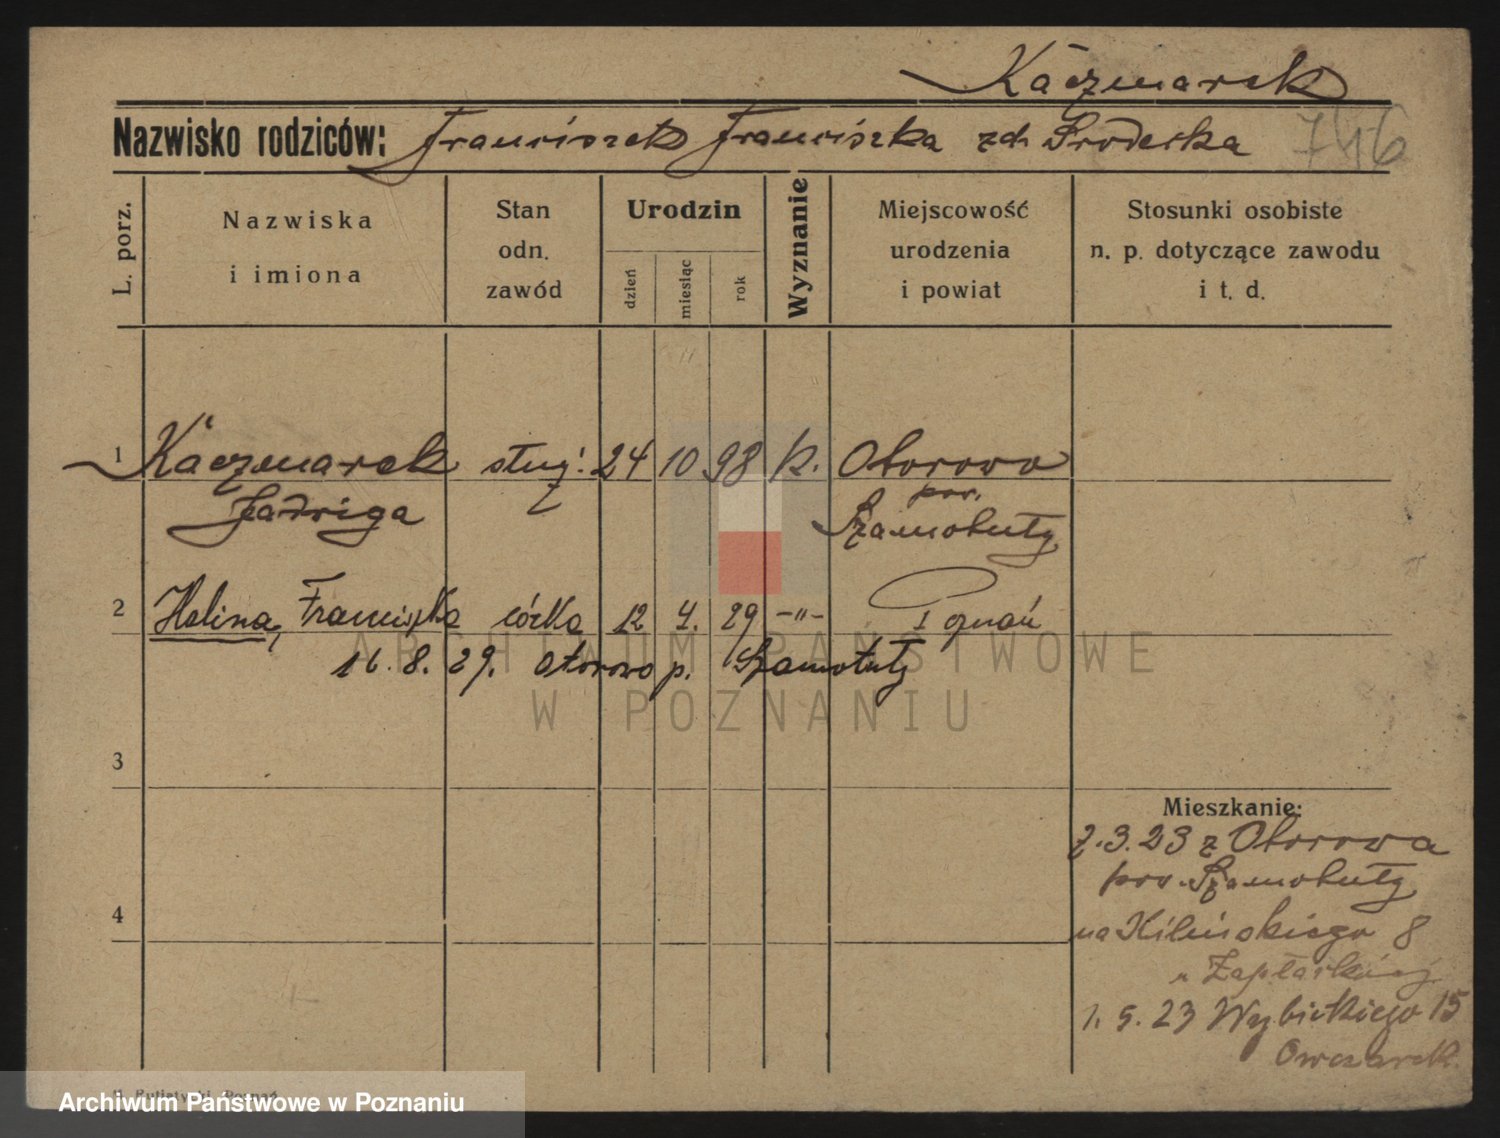 Kaczmarek
Nazwisko rodziców: Franciszek Franciszka zd. Środecka 746
L. porz.
Nazwiska i imiona
Stan odn. zawód
Urodzin
dzień
miesiąc
rok
Wyznanie
Miejscowość urodzenia i powiat
Stosunki osobiste n. p. dotyczące zawodu i t. d.
1 Kaczmarek służ. 24 10 98 k. Otorowo
pow.
Jadwiga Szamotuły
2 Halina, Franciszka córka 12 4. 29 -"- Poznań
16. 8. 29. Otorowo p. Szamotuły
3
Mieszkanie:
2.3.23 z Otorowa
pow. Szamotuły
4
na Kilińskiego 8
1. 5. 23 Wybickiego 15
Owczarek.
ARCHIWUM PAŃSTWOWE
W POZNANIU
Archiwum Państwowe w Poznaniu